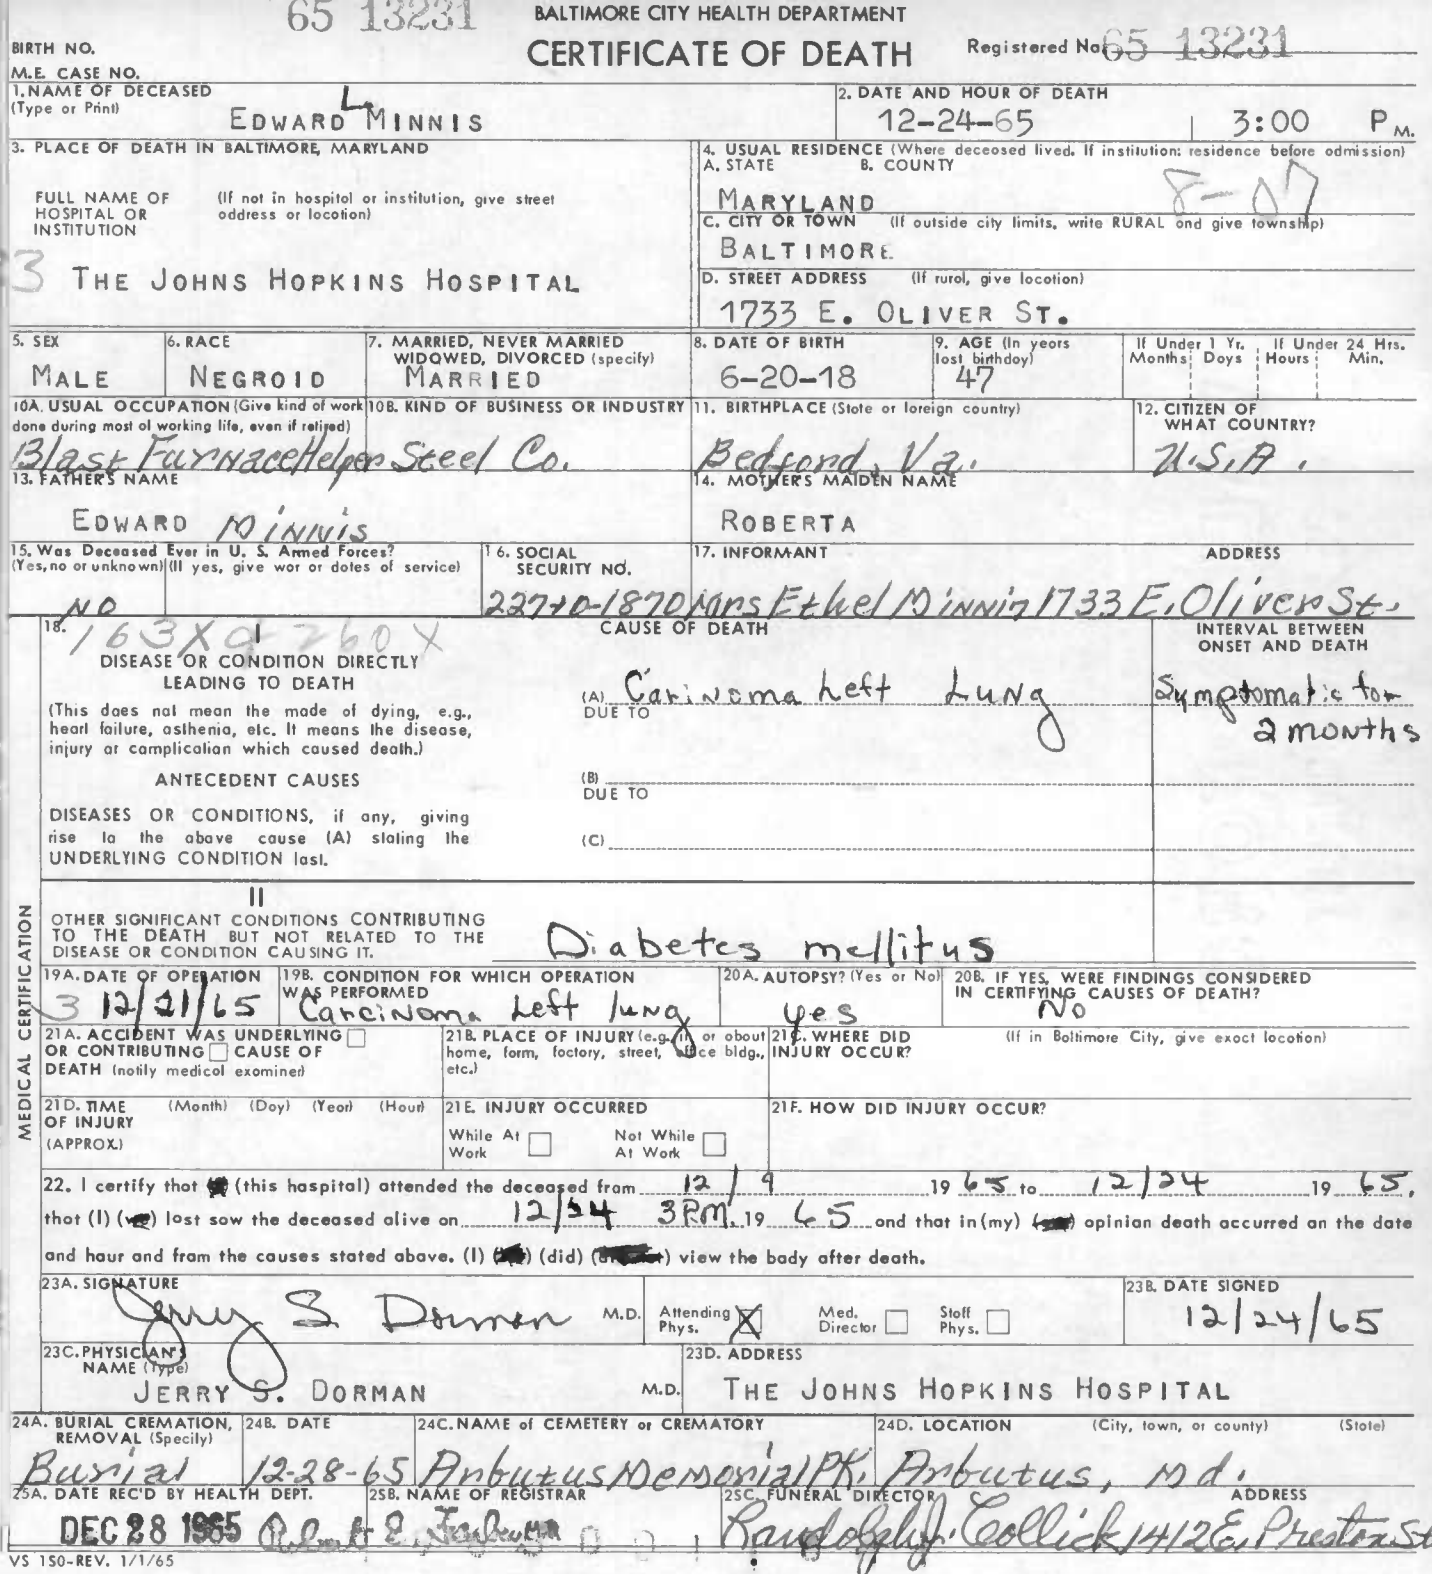 65 13231
BALTIMORE CITY HEALTH DEPARTMENT
BIRTH NO.
CERTIFICATE OF DEATH
Registered No. 65 13231
M.E. CASE NO.
1. NAME OF DECEASED
(Type or Print)
EDWARD L MINNIS
2. DATE AND HOUR OF DEATH
12-24-65 3:00 P M.
3. PLACE OF DEATH IN BALTIMORE, MARYLAND
FULL NAME OF HOSPITAL OR INSTITUTION
(If not in hospital or institution, give street address or location)
3 THE JOHNS HOPKINS HOSPITAL
4. USUAL RESIDENCE (Where deceased lived. If institution: residence before admission)
A. STATE B. COUNTY
MARYLAND 8-07
C. CITY OR TOWN (If outside city limits, write RURAL and give township)
BALTIMORE
D. STREET ADDRESS (If rural, give location)
1733 E. OLIVER ST.
5. SEX
MALE
6. RACE
NEGROID
7. MARRIED, NEVER MARRIED
WIDOWED, DIVORCED (specify)
MARRIED
8. DATE OF BIRTH
6-20-18
9. AGE (In years
last birthday)
47
If Under 1 Yr. If Under 24 Hrs.
Months Days Hours Min.
10A. USUAL OCCUPATION (Give kind of work
done during most of working life, even if retired)
Blast Furnace Helper
10B. KIND OF BUSINESS OR INDUSTRY
Steel Co.
11. BIRTHPLACE (State or foreign country)
Bedford, Va.
12. CITIZEN OF
WHAT COUNTRY?
U.S.A.
13. FATHER'S NAME
EDWARD Minnis
14. MOTHER'S MAIDEN NAME
ROBERTA
15. Was Deceased Ever in U. S. Armed Forces?
(Yes, no or unknown) (If yes, give war or dates of service)
NO
16. SOCIAL
SECURITY NO.
17. INFORMANT ADDRESS
Mrs Ethel Minnis 1733 E. Oliver St.
18. 163X 260X
I
DISEASE OR CONDITION DIRECTLY
LEADING TO DEATH
(This does not mean the mode of dying, e.g.,
heart failure, asthenia, etc. It means the disease,
injury or complication which caused death.)
ANTECEDENT CAUSES
DISEASES OR CONDITIONS, if any, giving
rise to the above cause (A) stating the
UNDERLYING CONDITION last.
CAUSE OF DEATH
(A) Carinoma Left Lung
DUE TO
(B)
DUE TO
(C)
INTERVAL BETWEEN
ONSET AND DEATH
Symptomatic for
2 months
II
OTHER SIGNIFICANT CONDITIONS CONTRIBUTING
TO THE DEATH BUT NOT RELATED TO THE
DISEASE OR CONDITION CAUSING IT.
Diabetes mellitus
MEDICAL CERTIFICATION
19A. DATE OF OPERATION
3 12/21/65
19B. CONDITION FOR WHICH OPERATION
WAS PERFORMED
Carcinoma Left lung
20A. AUTOPSY? (Yes or No)
yes
20B. IF YES, WERE FINDINGS CONSIDERED
IN CERTIFYING CAUSES OF DEATH?
No
21A. ACCIDENT WAS UNDERLYING
OR CONTRIBUTING CAUSE OF
DEATH (notify medical examiner)
21B. PLACE OF INJURY (e.g., in or about
home, farm, factory, street, office bldg.,
etc.)
21C. WHERE DID
INJURY OCCUR?
(If in Baltimore City, give exact location)
21D. TIME (Month) (Day) (Year) (Hour)
OF INJURY
(APPROX.)
21E. INJURY OCCURRED
While At Work Not While At Work
21F. HOW DID INJURY OCCUR?
22. I certify that (this hospital) attended the deceased from 12/9 19 65 to 12/24 19 65,
that (I) (we) last saw the deceased alive on 12/24 3 P.M. 19 65 and that in (my) opinion death occurred on the date
and hour and from the causes stated above. (I) (did) view the body after death.
23A. SIGNATURE
Jerry S. Dorman M.D.
Attending Phys. X Med. Director Staff Phys.
23B. DATE SIGNED
12/24/65
23C. PHYSICIAN'S
NAME (Type)
JERRY S. DORMAN M.D.
23D. ADDRESS
THE JOHNS HOPKINS HOSPITAL
24A. BURIAL CREMATION,
REMOVAL (Specify)
Burial
24B. DATE
12-28-65
24C. NAME of CEMETERY or CREMATORY
Arbutus Memorial PK.
24D. LOCATION (City, town, or county) (State)
Arbutus, Md.
25A. DATE REC'D BY HEALTH DEPT.
DEC 28 1965
25B. NAME OF REGISTRAR
25C. FUNERAL DIRECTOR ADDRESS
Randolph J. Collick 1412 E. Preston St
VS 150-REV. 1/1/65